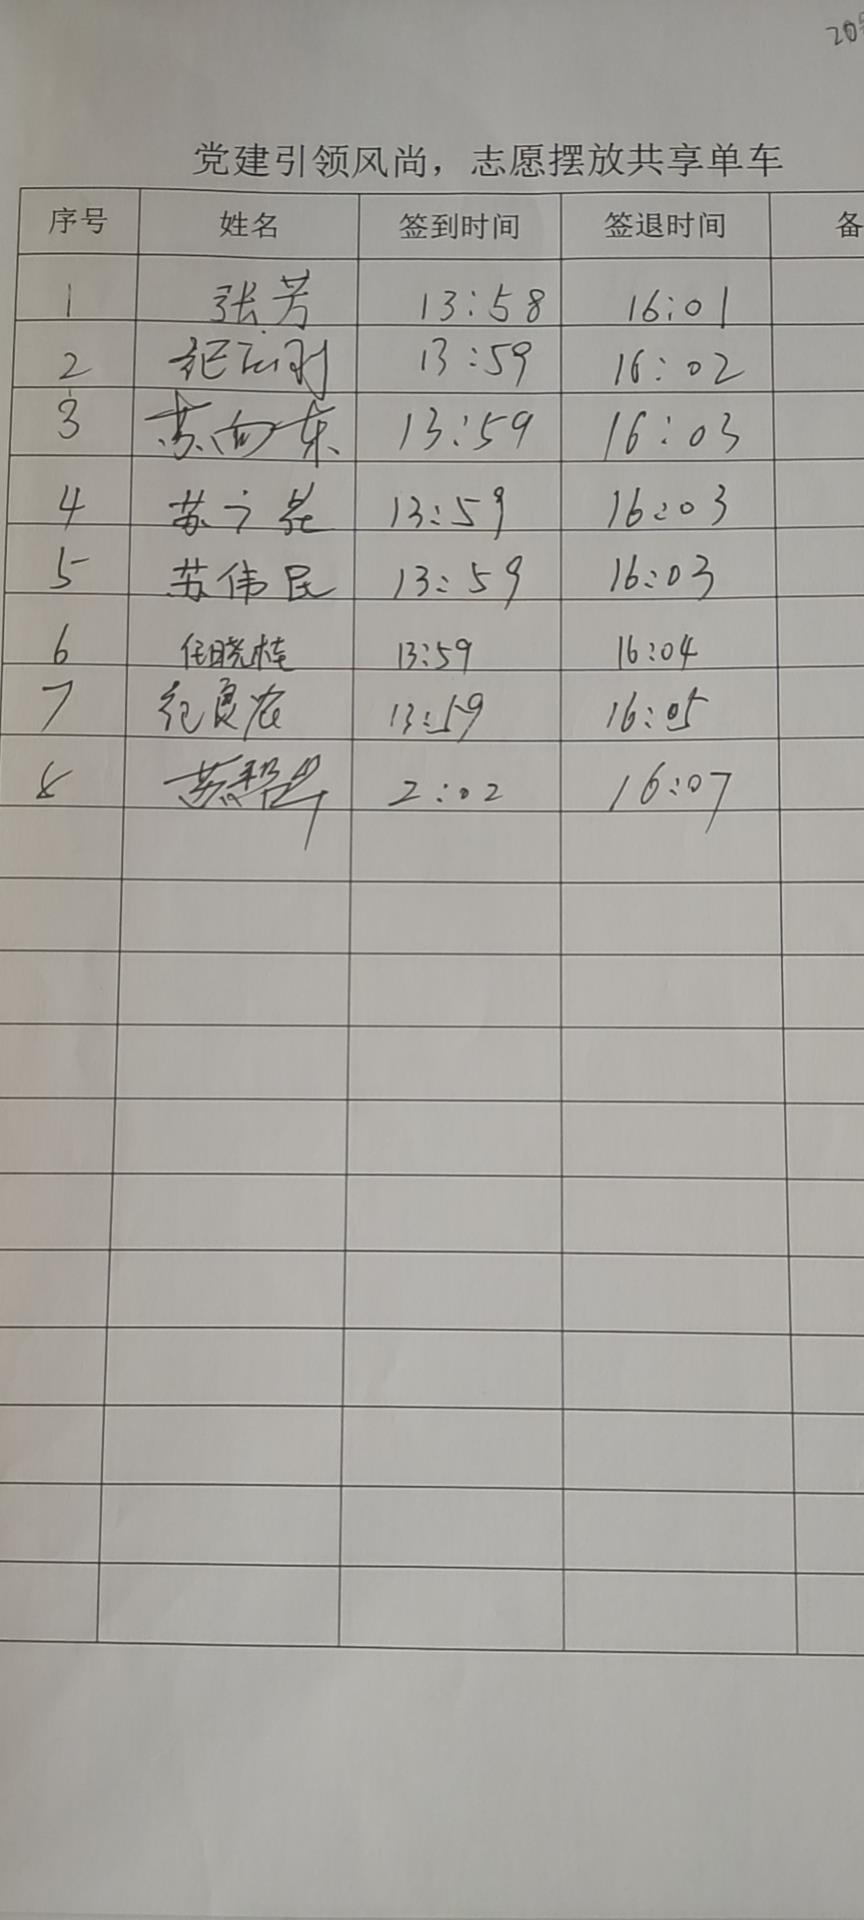 20
党建引领风尚，志愿摆放共享单车
序号 姓名 签到时间 签退时间 备
1 张芳 13:58 16:01
2 13:59 16:02
3 苏向东 13:59 16:03
4 苏 13:59 16:03
5 苏伟民 13:59 16:03
6 任晓桂 13:59 16:04
7 纪良农 13:59 16:05
8 2:02 16:07